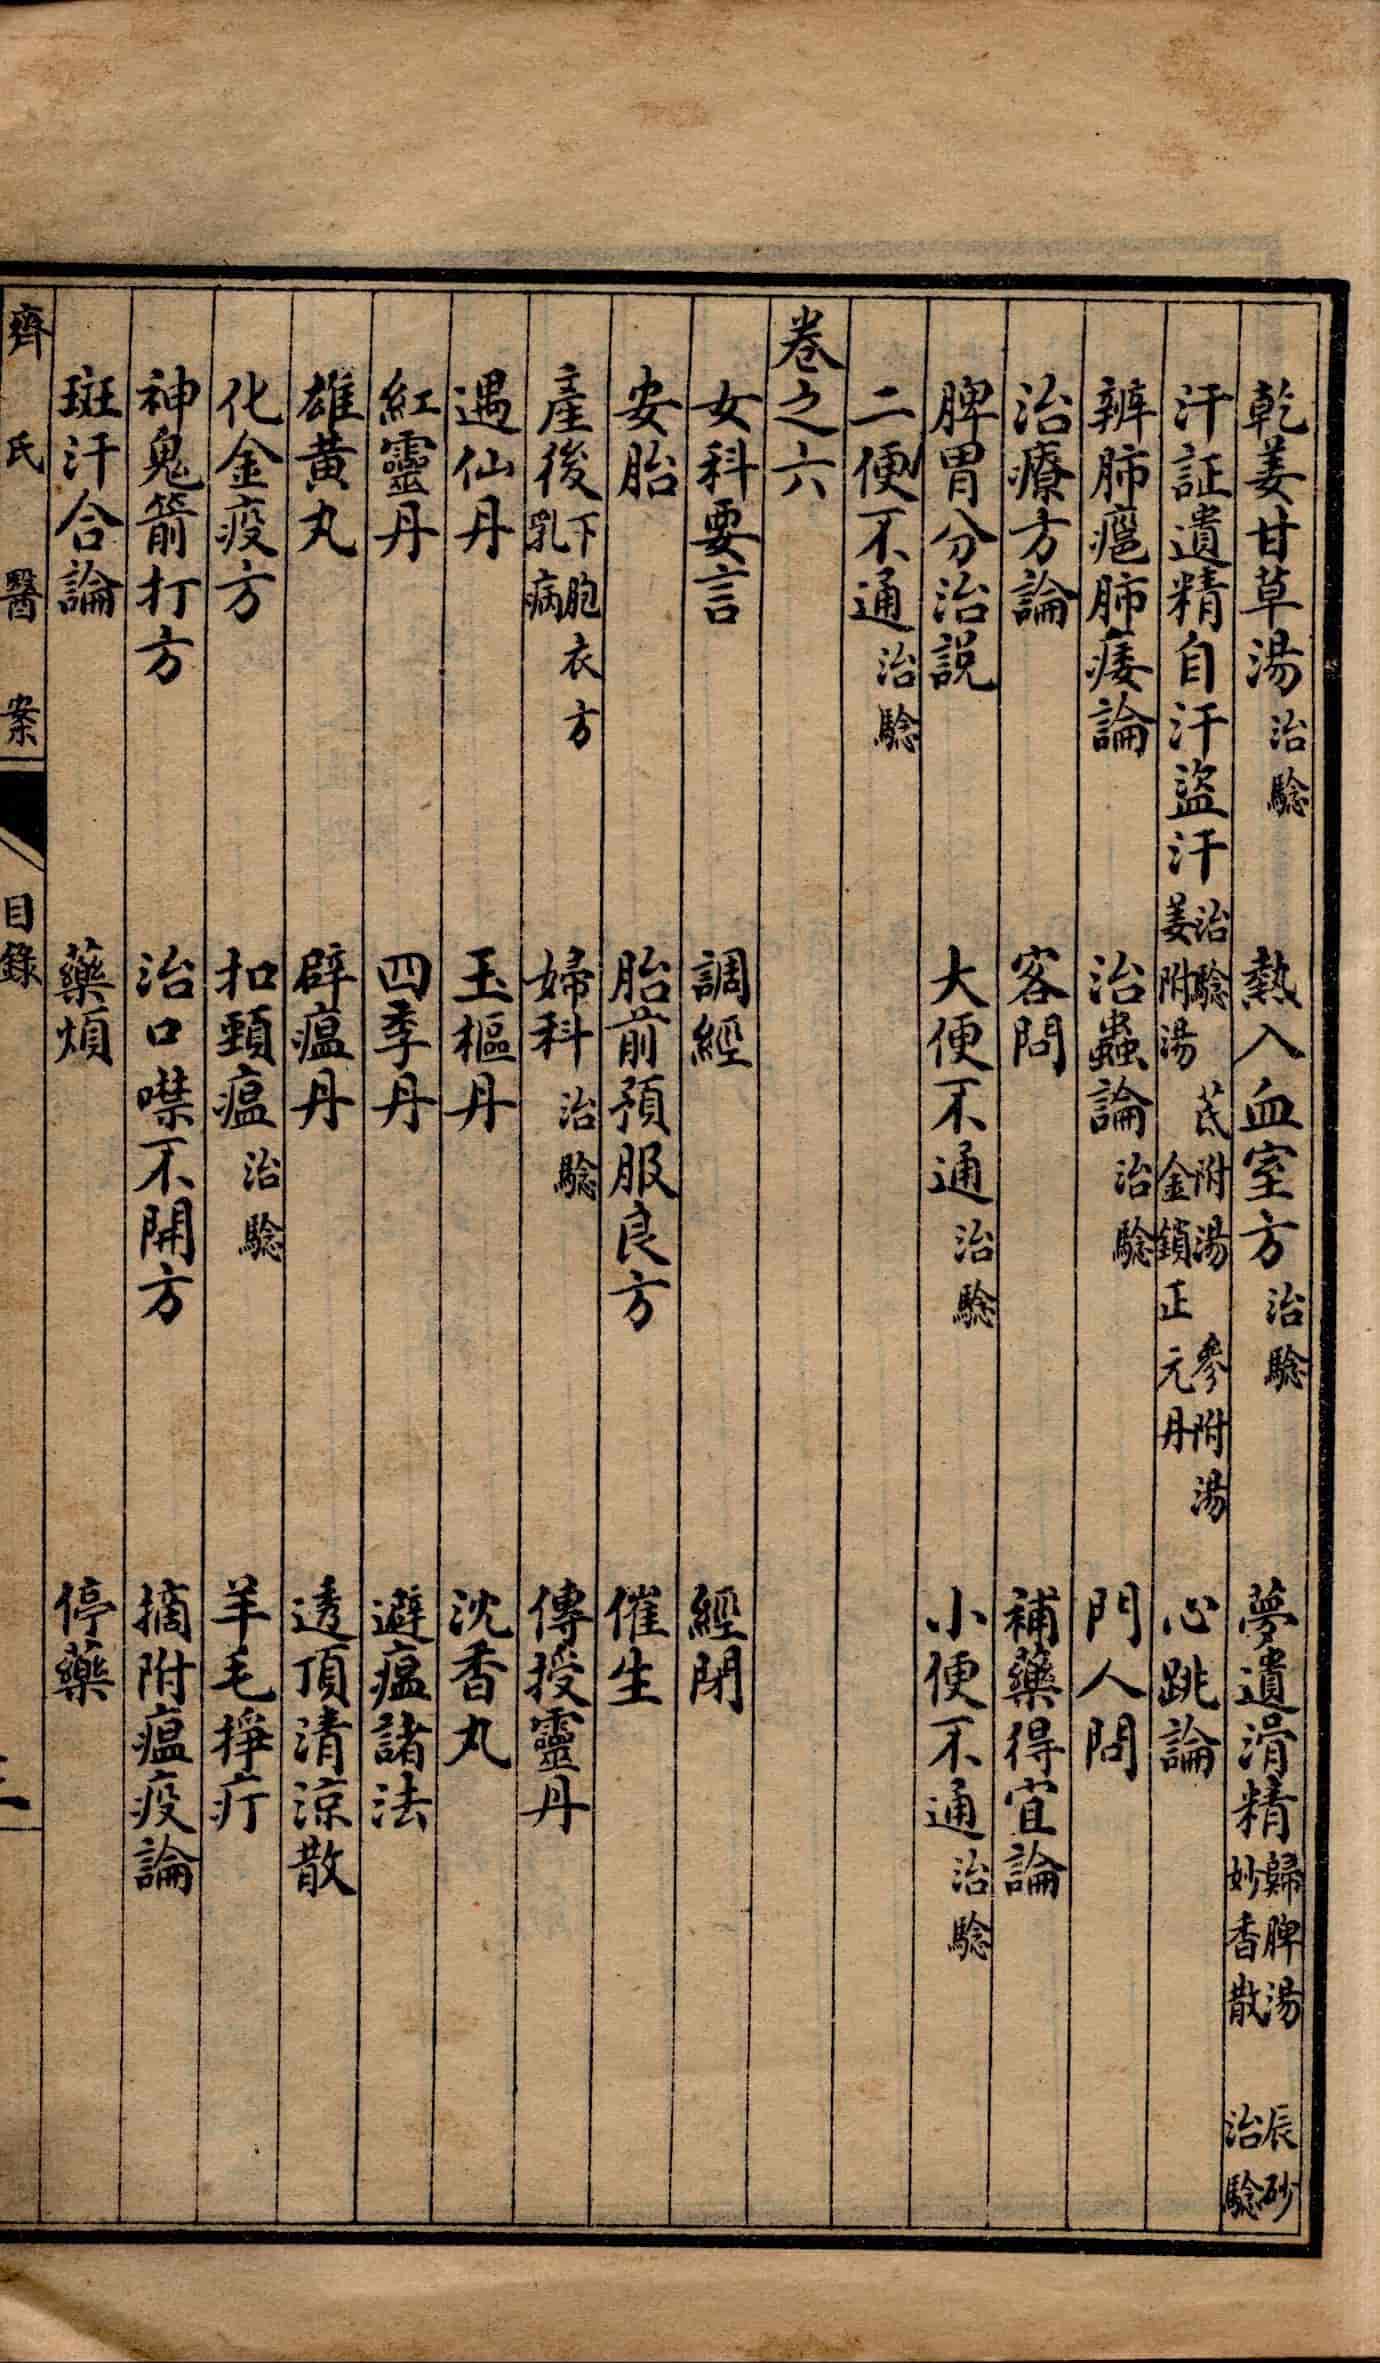 乾姜甘草湯治驗 熱入血室方治驗 夢遺滑精歸脾湯 辰砂妙香散 治驗
汗証遺精自汗盜汗治驗 芪附湯 參附湯 姜附湯 金鎖正元丹 心跳論
辨肺痿論 治蟲論治驗 門人問
治療方論 客問 補藥得宜論
脾胃分治説 大便不通治驗 小便不通治驗
二便不通治驗
卷之六
女科要言 調經 經閉
安胎 胎前預服良方 催生
產後下胞衣方 乳病 婦科治驗 傳授靈丹
遇仙丹 玉樞丹 沈香丸
紅靈丹 四季丹 避瘟諸法
雄黃丸 辟瘟丹 透頂清涼散
化金疫方 扣頸瘟治驗 羊毛掙疔
神鬼箭打方 治口噤不開方 摘附瘟疫論
斑汗合論 藥煩 停藥
齊氏醫案 目錄